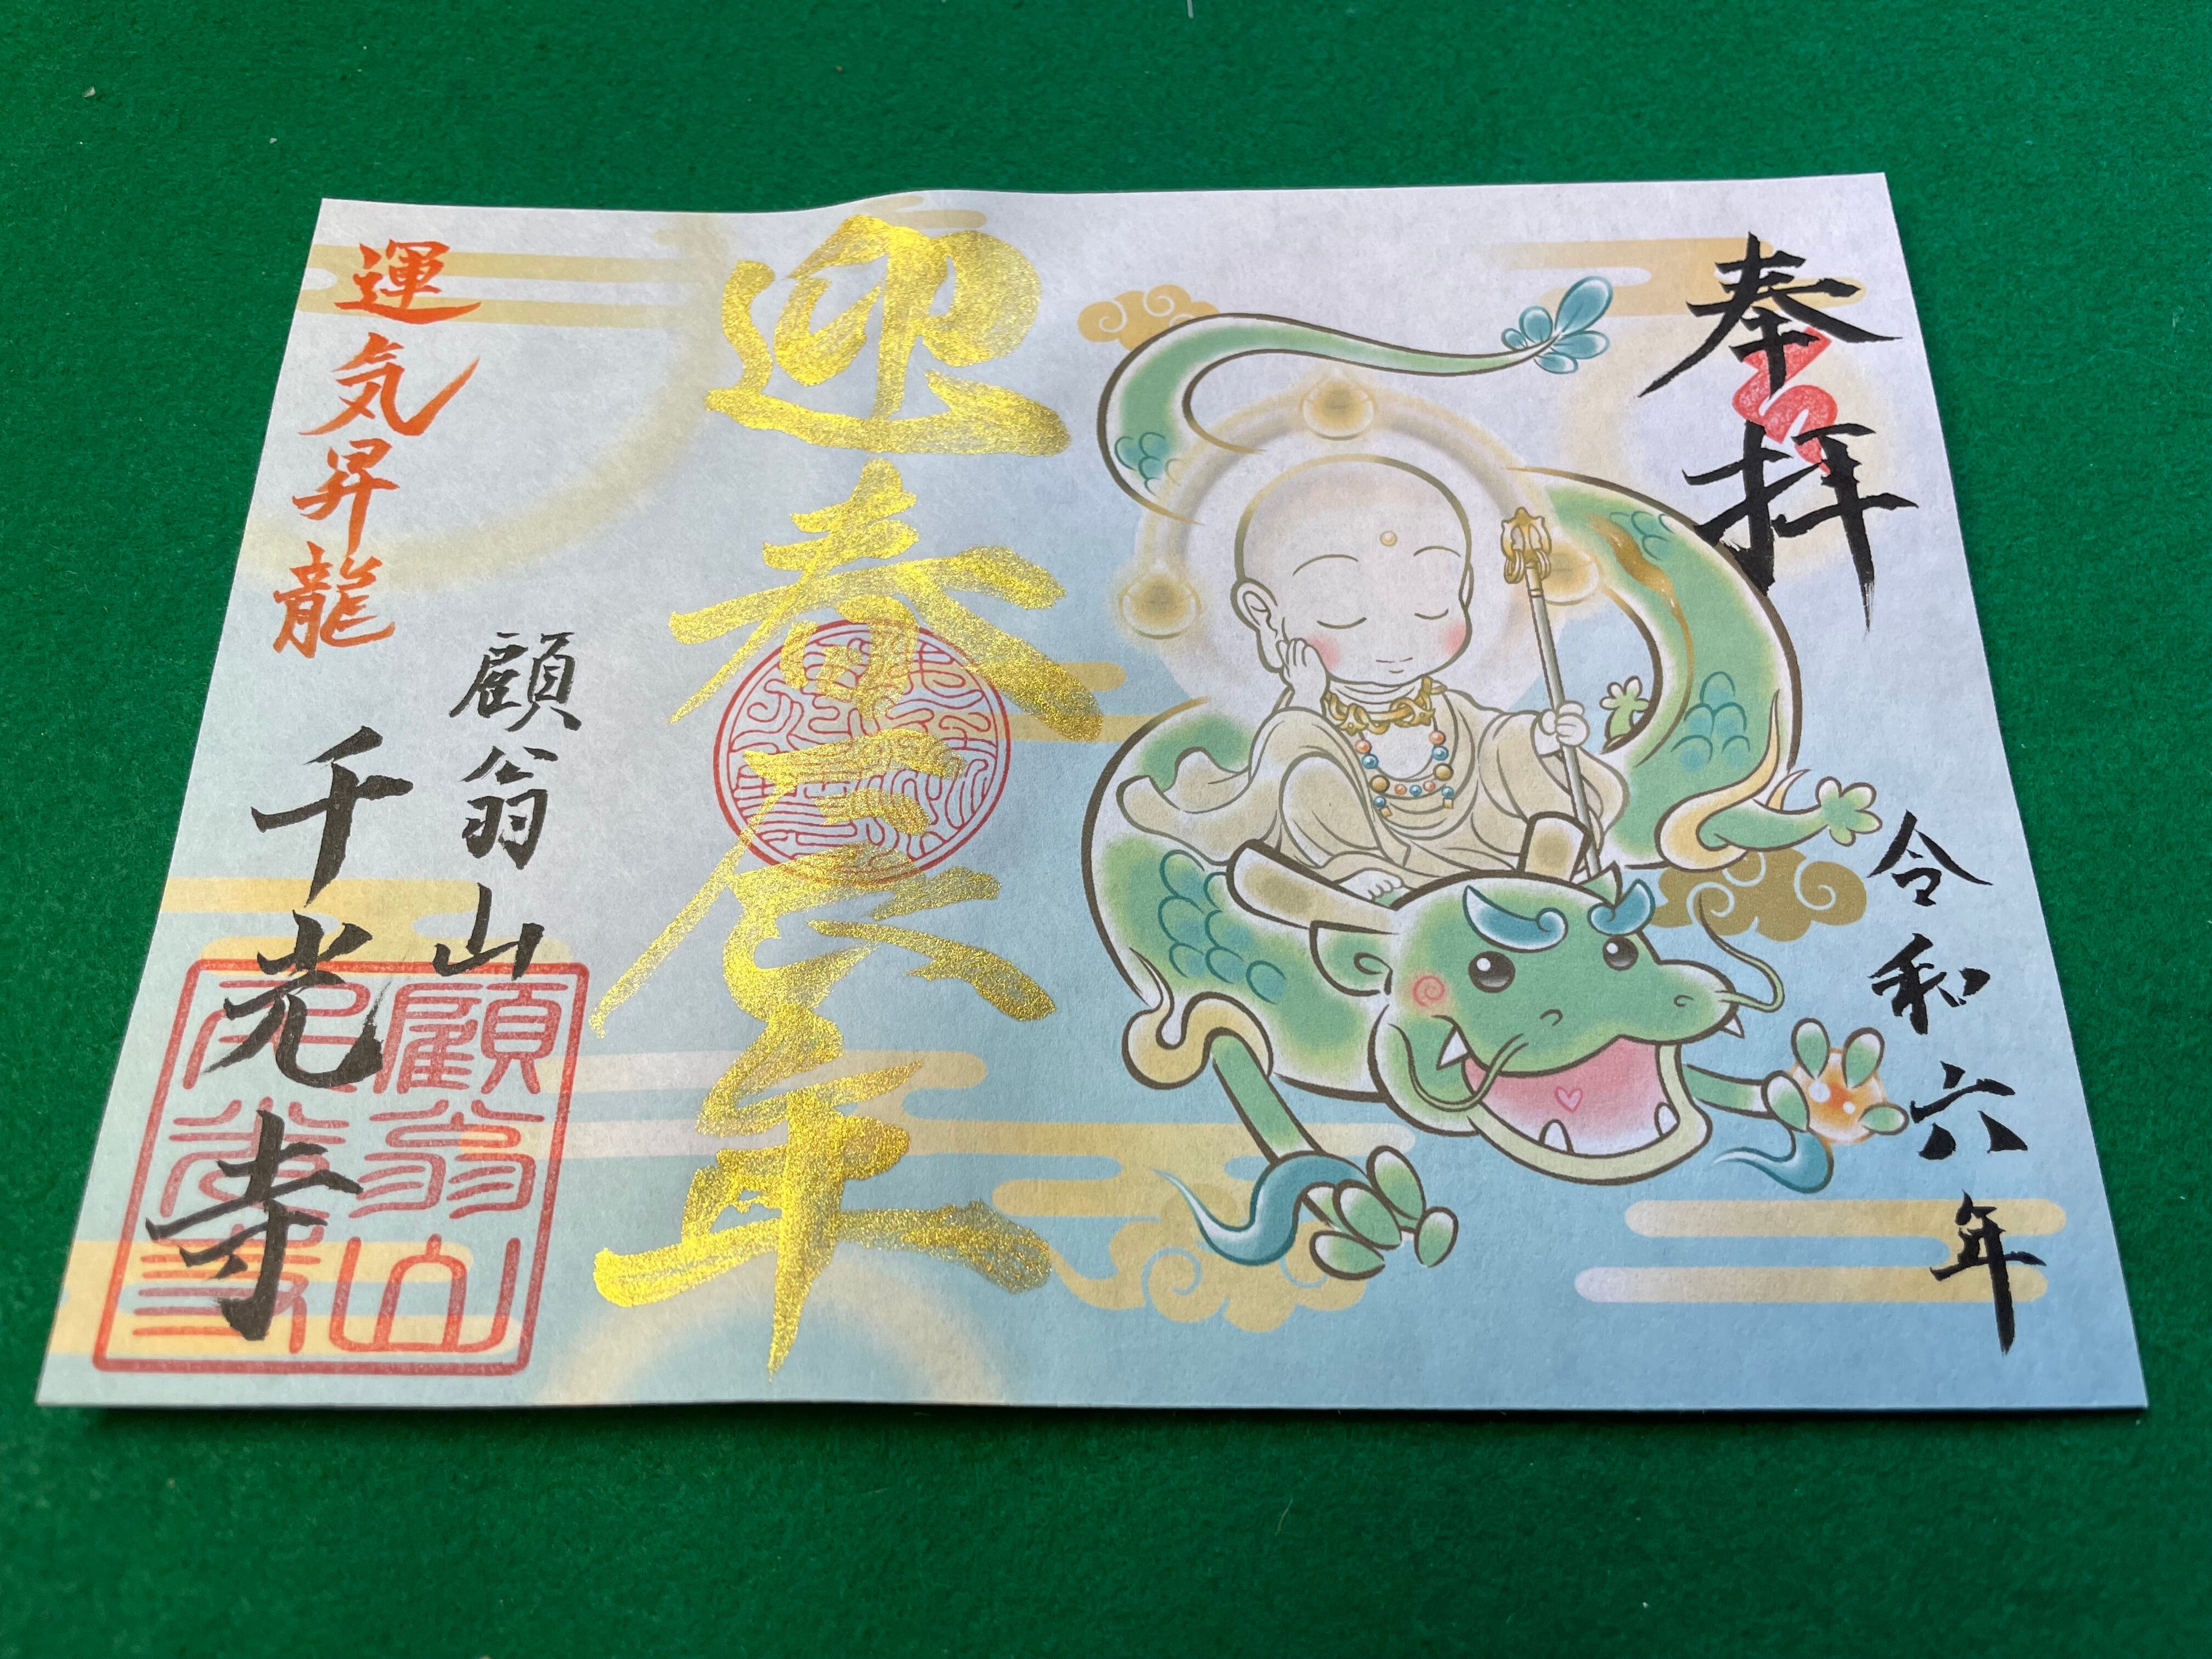 奉拝
令和六年
迎春辰年
運気昇龍
顧翁山
千光寺
顧翁山
千光寺